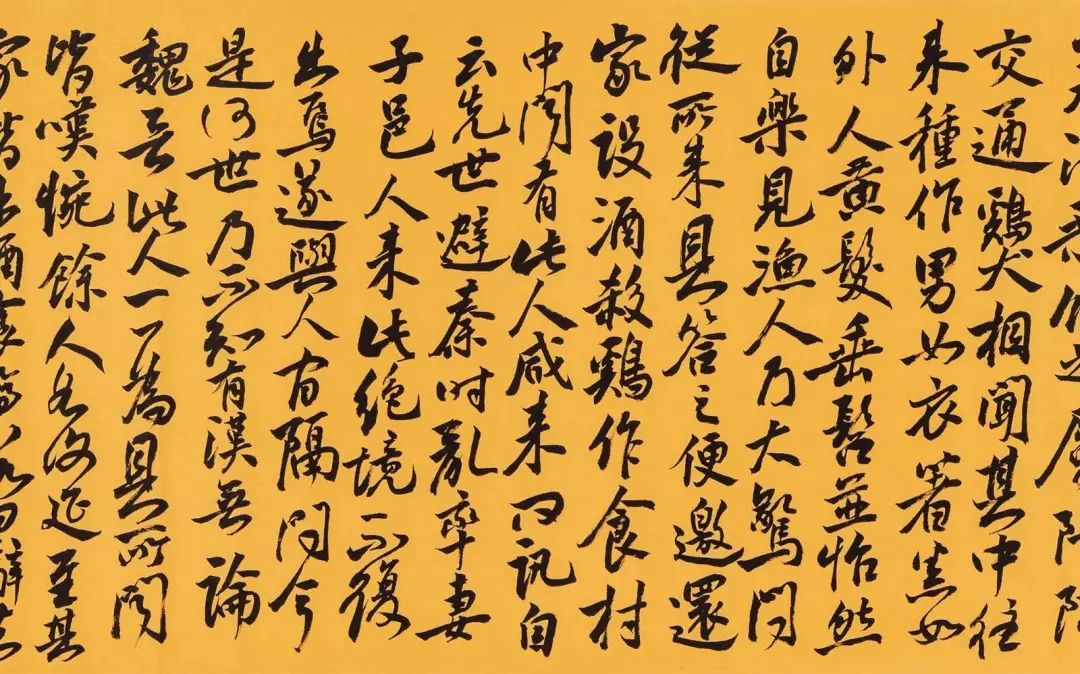 交通鷄犬相聞其中往
来種作男女衣著悉如
外人黄髮垂髫並怡然
自樂見漁人乃大驚問
從所来具答之便邀還
家設酒殺鷄作食村
中聞有此人咸来問訊自
云先世避秦時亂率妻
子邑人来此絶境不復
出焉遂與人間隔問今
是何世乃不知有漢無論
魏晋此人一一為具所聞
皆嘆惋餘人各復延至其